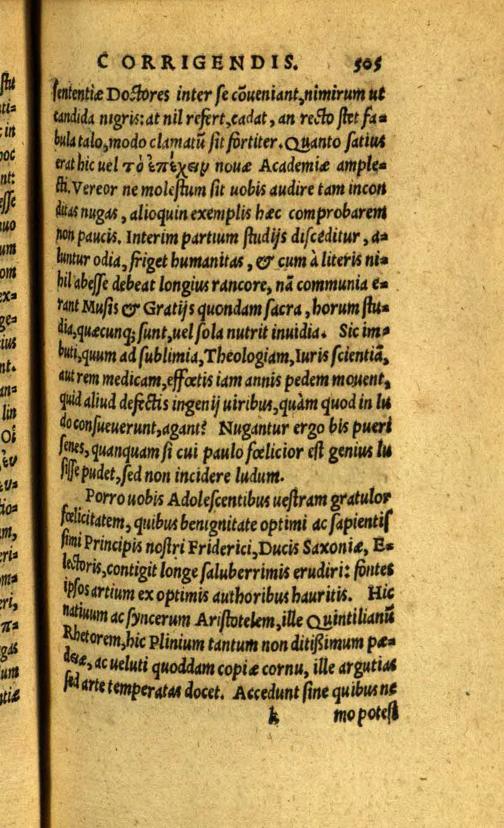 CORRIGENDIS. 505
sententiæ Doctores inter se cõueniant, nimirum ut
candida nigris: at nil refert, cadat, an recto stet fa-
bula talo, modo clamatũ sit fortiter. Quanto satius
erat hic uel τὸ ἐπέχειν nouæ Academiæ ample-
cti. Vereor ne molestum sit uobis audire tam incon
ditas nugas, alioquin exemplis hæc comprobarem
non paucis. Interim partium studijs disceditur, a-
luntur odia, friget humanitas, & cum à literis ni-
hil abesse debeat longius rancore, nã communia e-
rant Musis & Gratijs quondam sacra, horum stu-
dia, quæcunq; sunt, uel sola nutrit inuidia. Sic im-
buti, quum ad sublimia, Theologiam, Iuris scientiã,
aut rem medicam, effœtis iam annis pedem mouent,
quid aliud defectis ingenij uiribus, quàm quod in lu
do consueuerunt, agant? Nugantur ergo bis pueri
senes, quanquam si cui paulo fœlicior est genius lu
sisse pudet, sed non incidere ludum.
Porro uobis Adolescentibus uestram gratulor
fœlicitatem, quibus benignitate optimi ac sapientis
simi Principis nostri Friderici, Ducis Saxoniæ, E-
lectoris, contigit longe saluberrimis erudiri: fontes
ipsos artium ex optimis authoribus hauritis. Hic
natiuum ac syncerum Aristotelem, ille Quintilianũ
Rhetorem, hic Plinium tantum non ditißimum pæ-
deiæ, ac ueluti quoddam copiæ cornu, ille argutias
sed arte temperatas docet. Accedunt sine quibus ne
k mo potest